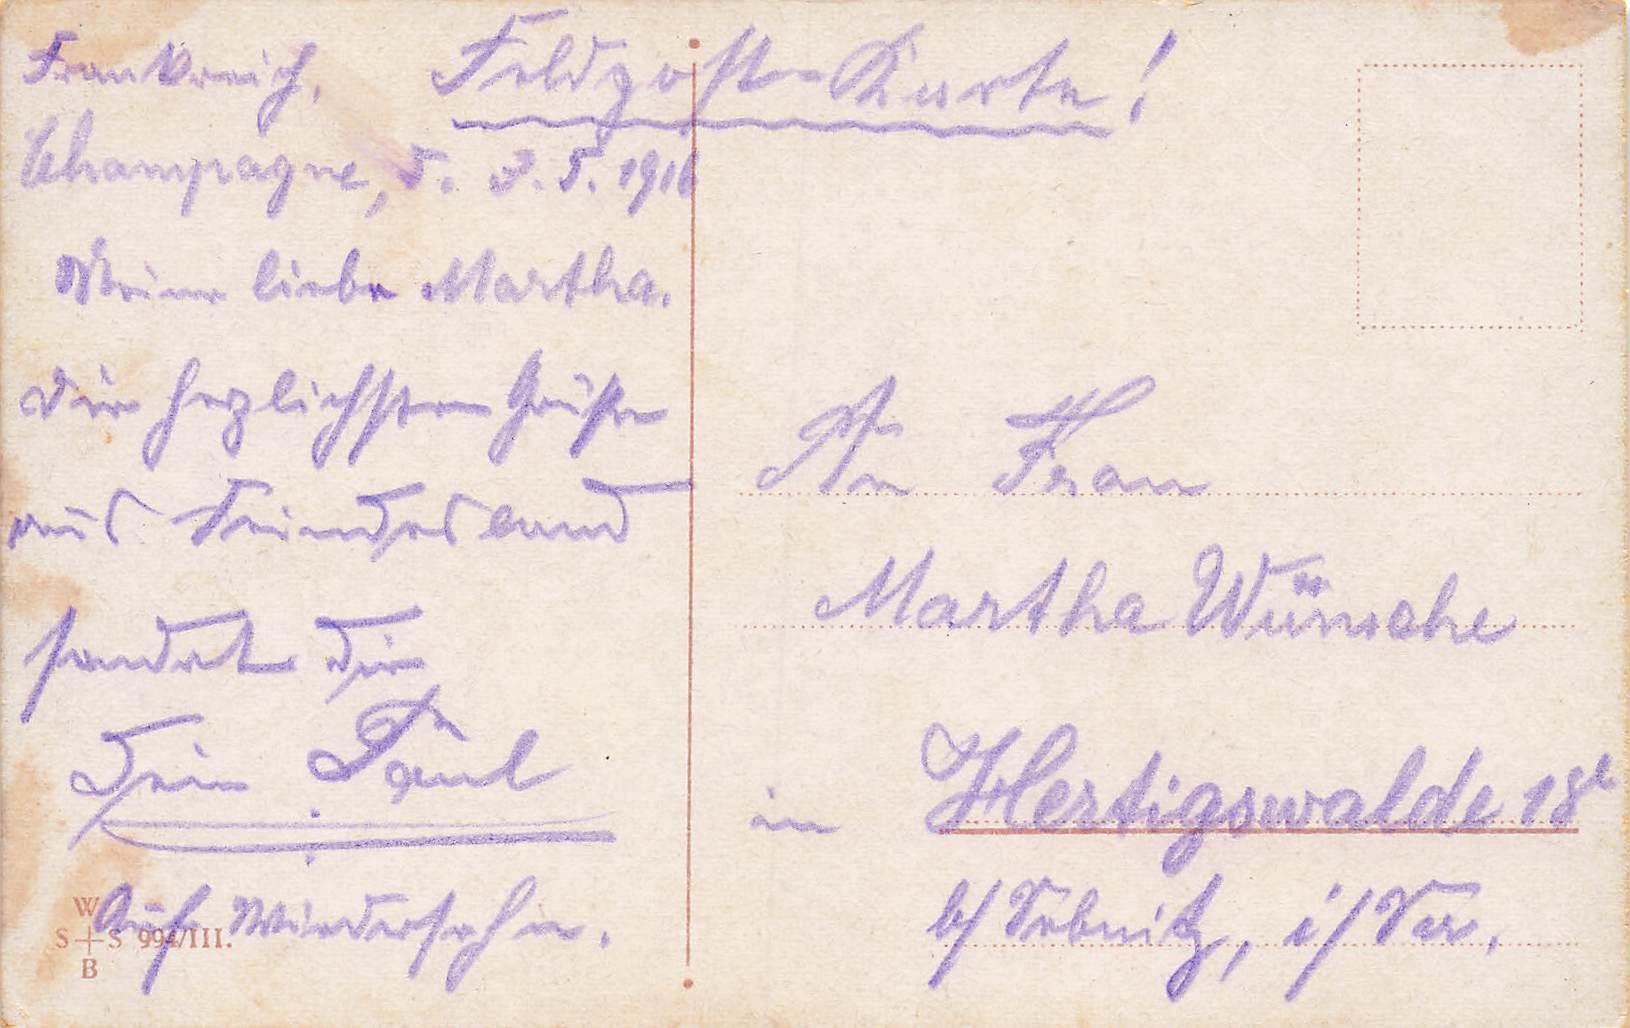 Feldpost-Karte!
Frankreich,
Champagne, d. 3.5.1916
Meine liebe Martha.
Die herzlichsten Grüße
aus Feindesland
sendet Dir
Dein Paul
Auf Wiedersehn.
An Frau
Martha Wünsche
in Hertigswalde 18b
b/ Sebnitz, i/ Sa.
W
S+S 994/III.
B